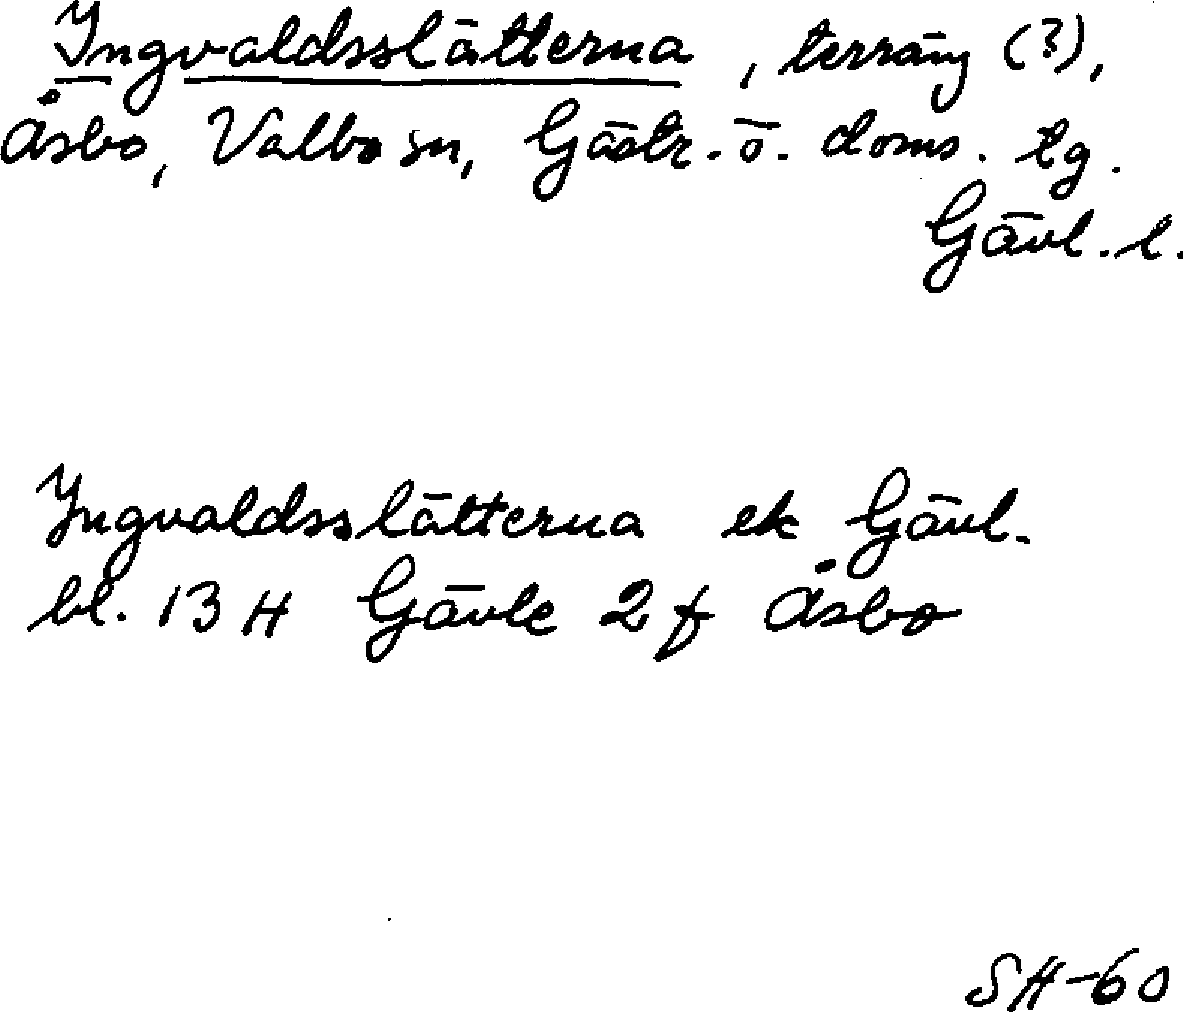 Ingvaldsslätterna, terräng (?),
Åsbo, Valbo sn, Gästr. ö. doms. tg.
Gävl. l.
Ingvaldsslätterna ek Gävl.
bl. 13 H Gävle 2 f Åsbo
SH-60